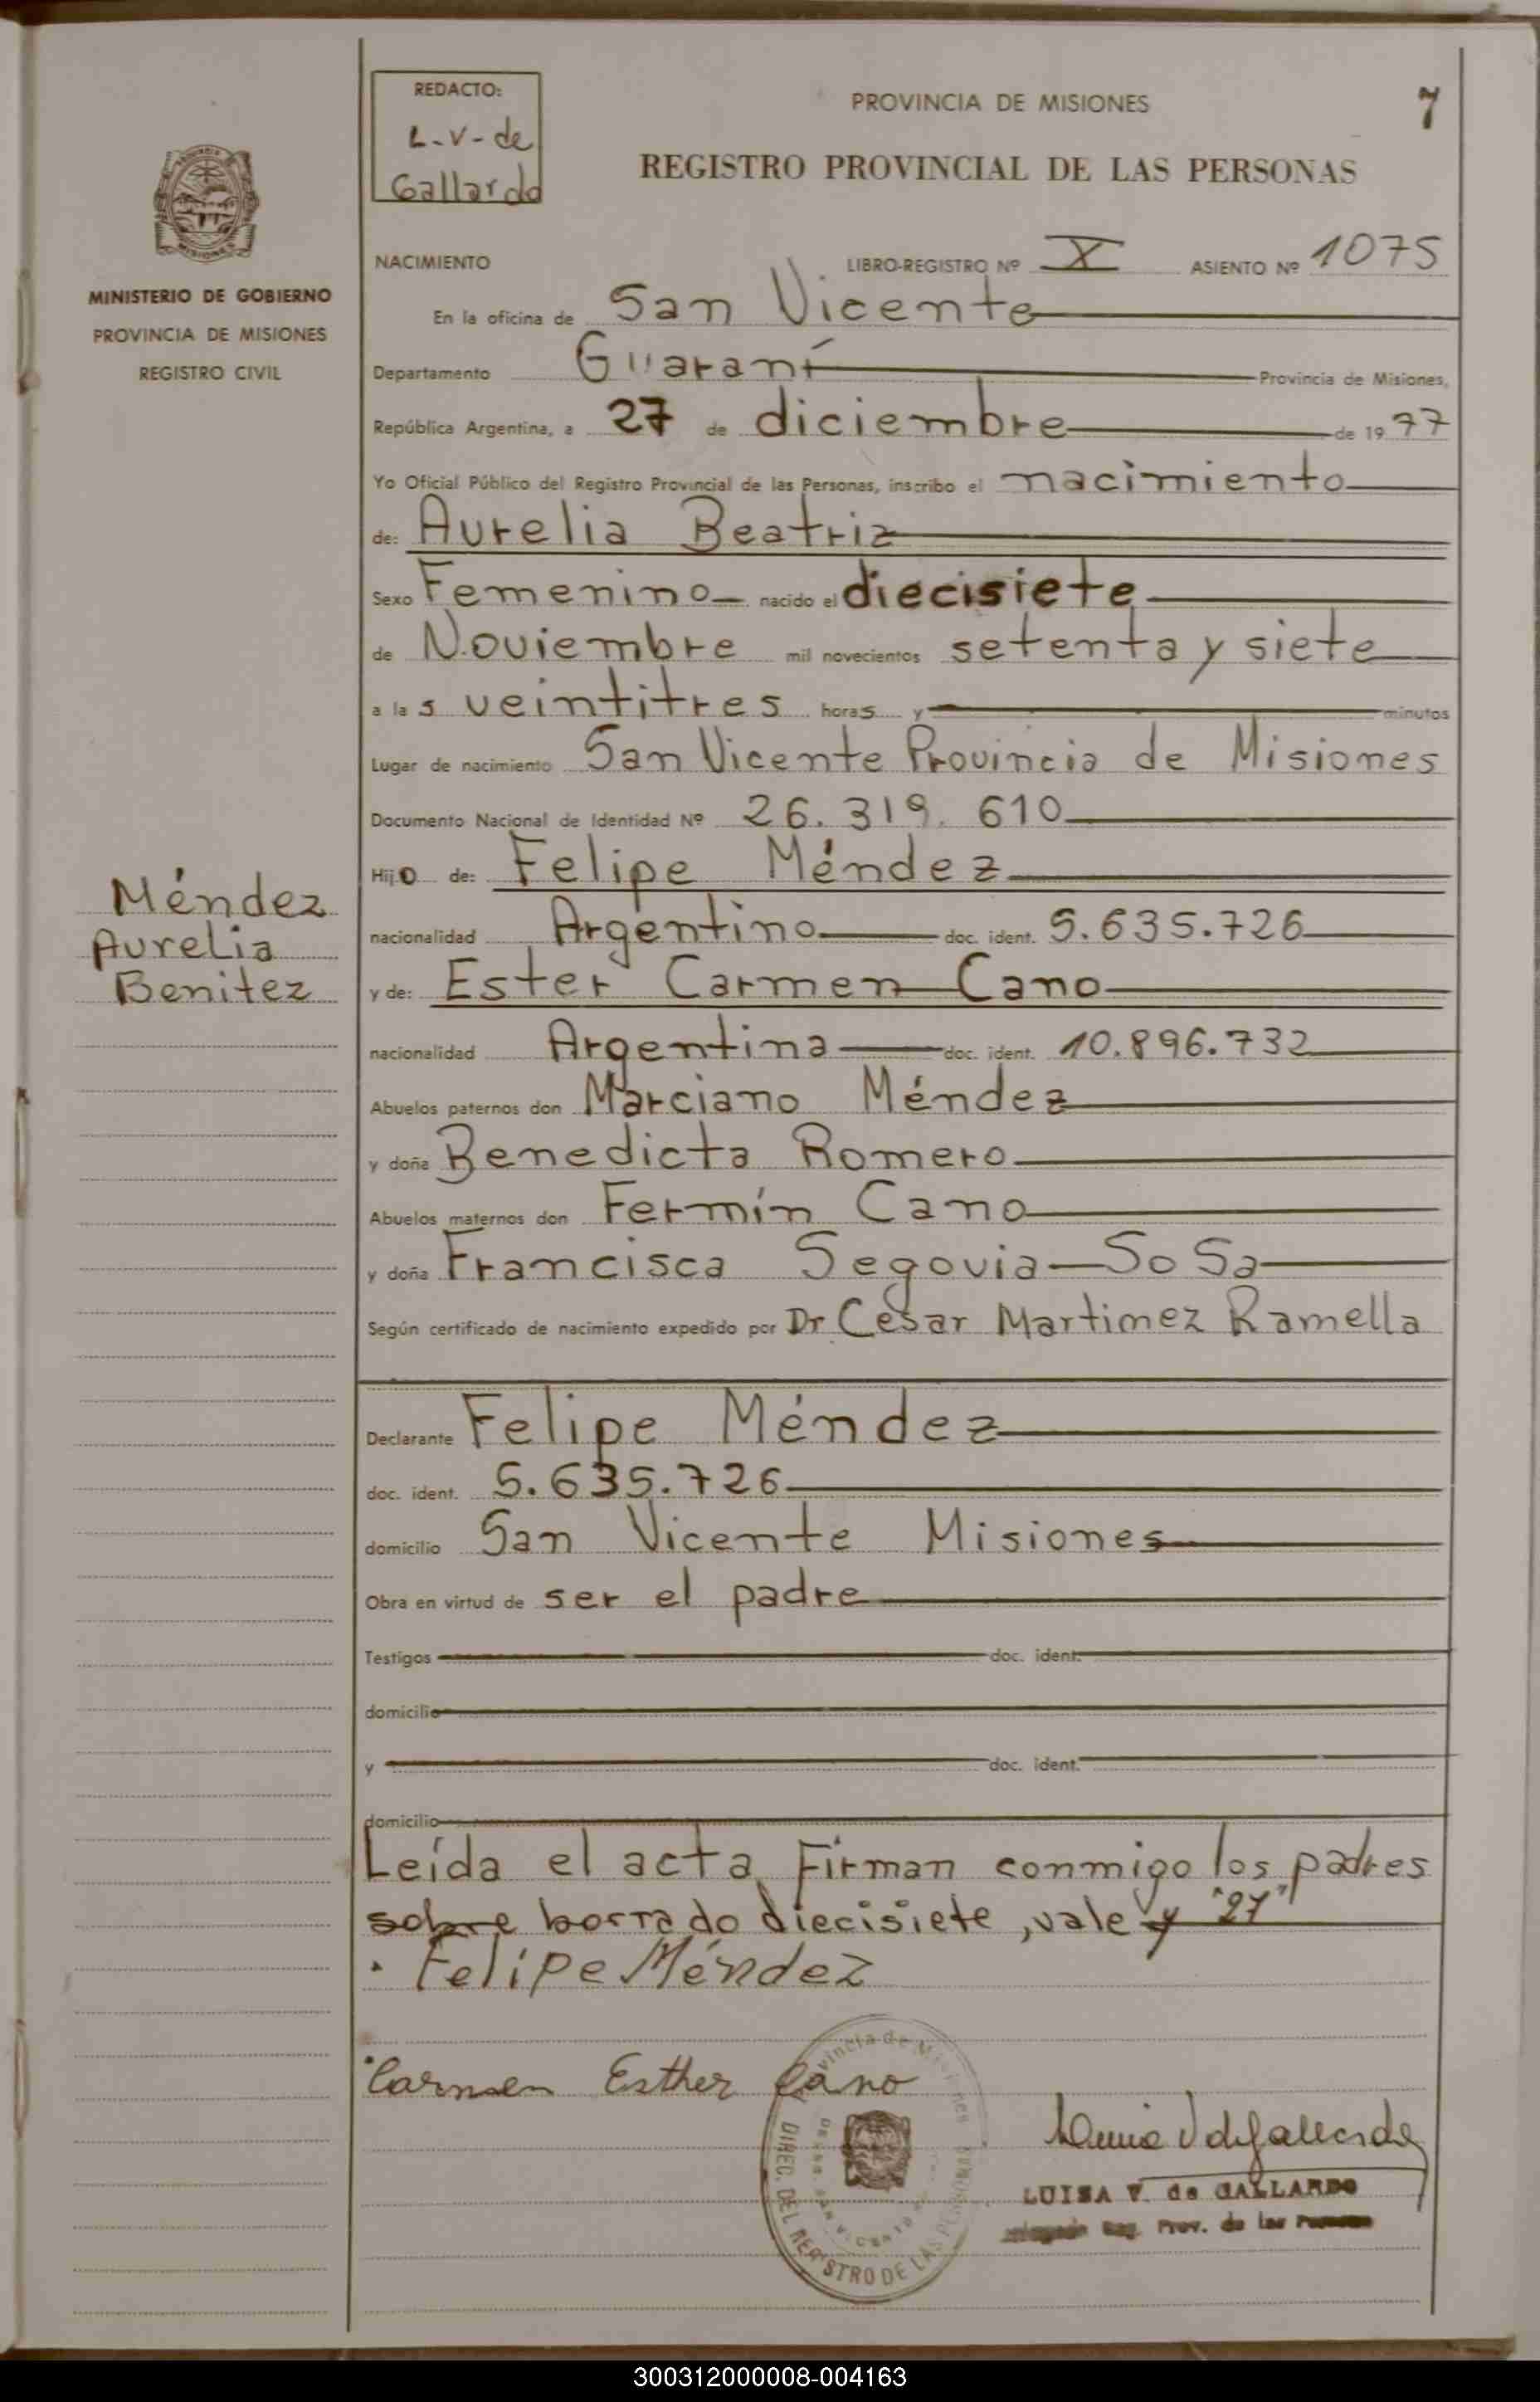 REDACTO:
L-V-de
Gallardo
PROVINCIA DE MISIONES
7
REGISTRO PROVINCIAL DE LAS PERSONAS
MISIONES
MINISTERIO DE GOBIERNO
PROVINCIA DE MISIONES
REGISTRO CIVIL
NACIMIENTO LIBRO-REGISTRO Nº X ASIENTO Nº 1075
En la oficina de San Vicente
Departamento Guaraní Provincia de Misiones,
República Argentina, a 27 de diciembre de 1977
Yo Oficial Público del Registro Provincial de las Personas, inscribo el nacimiento
de: Aurelia Beatriz
Sexo Femenino nacido el diecisiete
de Noviembre mil novecientos setenta y siete
a las veintitres horas y minutos
Lugar de nacimiento San Vicente Provincia de Misiones
Documento Nacional de Identidad Nº 26.319.610
Hijo de: Felipe Méndez
Méndez
Aurelia
Benitez
nacionalidad Argentino doc. ident. 5.635.726
y de: Ester Carmen Cano
nacionalidad Argentina doc. ident. 10.896.732
Abuelos paternos don Marciano Méndez
y doña Benedicta Romero
Abuelos maternos don Fermín Cano
y doña Francisca Segovia Sosa
Según certificado de nacimiento expedido por Dr Cesar Martimez Ramella
Declarante Felipe Méndez
doc. ident. 5.635.726
domicilio San Vicente Misiones
Obra en virtud de ser el padre
Testigos doc. ident.
domicilio
y doc. ident.
domicilio
Leída el acta Firman conmigo los padres
sobre borrado diecisiete, vale y "27"
Felipe Méndez
Carmen Esther Cano
Provincia de Misiones
DIREC. DEL REGISTRO DE LAS PERSONAS
LUISA V. de GALLARDO
Reg. Prov. de las Personas
300312000008-004163